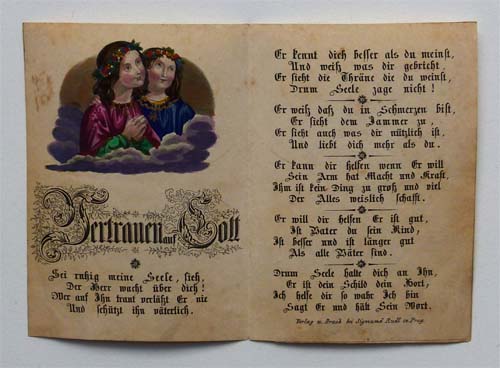 Vertrauen auf Gott
Sei ruhig meine Seele, sieh,
Der Herr wacht über dich!
Wer auf Ihn traut verläßt Er nie
Und schützt ihn väterlich.
Er kennt dich besser als du meinst,
Und weiß was dir gebricht,
Er sieht die Thräne die du weinst,
Drum Seele zage nicht!
Er weiß daß du in Schmerzen bist,
Er sieht dem Jammer zu,
Er sieht auch was dir nützlich ist,
Und liebt dich mehr als du.
Er kann dir helfen wenn Er will
Sein Arm hat Macht und Kraft,
Ihm ist kein Ding zu groß und viel
Der Alles weislich schafft.
Er will dir helfen Er ist gut,
Ist Vater du sein Kind,
Ist besser und ist länger gut
Als alle Väter sind.
Drum Seele halte dich an Ihn,
Er ist dein Schild dein Hort,
Ich helfe dir so wahr Ich bin
Sagt Er und hält Sein Wort.
Verlag u. Druck bei Sigmund Rudl in Prag